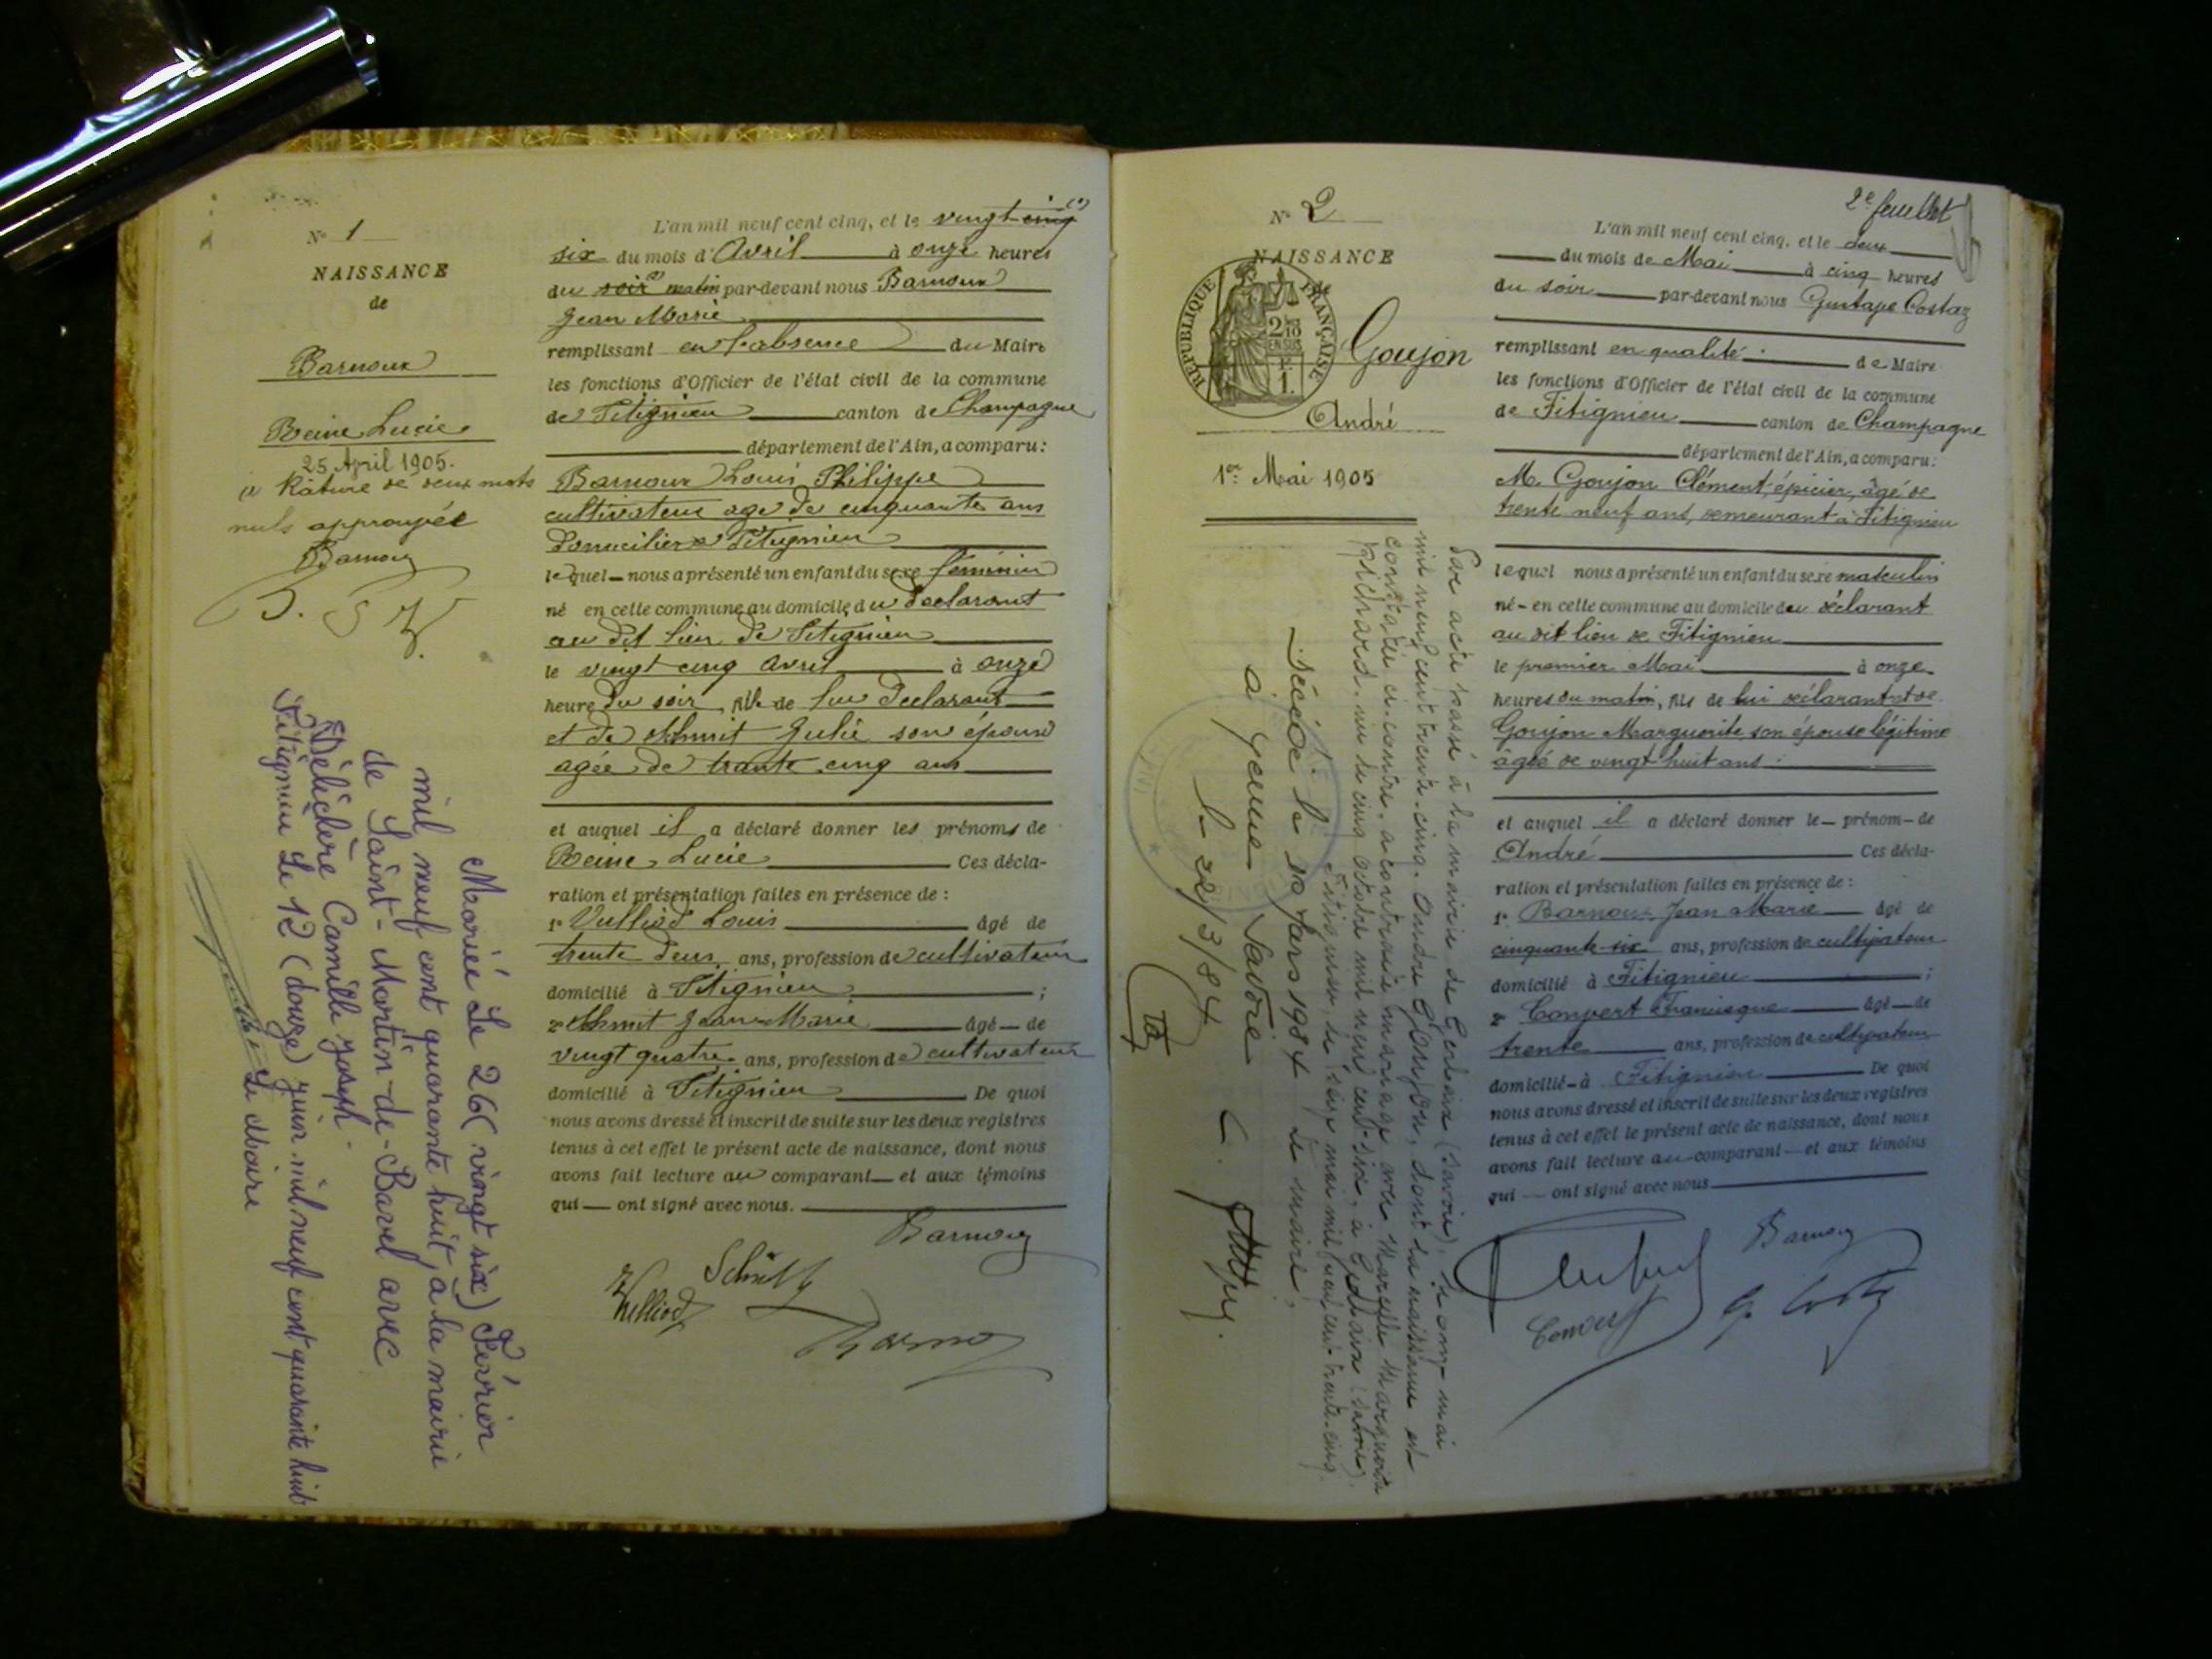 N° 1
NAISSANCE
de
Barnoux
Reine Lucie
25 April 1905.
(1) Rature de deux mots
nuls approuvée
Barnoux
B. S V.
Mariée Le 26 (vingt six) Février
mil neuf cent quarante huit, à la mairie
de Saint-Martin-de-Bavel avec
Délicière Camille Joseph.
Fitignieu Le 12 (douze) juin mil neuf cent quarante huit
Le Maire
L'an mil neuf cent cinq, et le vingt cinq (1)
six du mois d'Avril à onze heures
du soir (1) matin par-devant nous Barnoux
Jean Marie
remplissant en l'absence du Maire
les fonctions d'Officier de l'état civil de la commune
de Fitignieu canton de Champagne
département de l'Ain, a comparu:
Barnoux Louis Philippe
cultivateur age de cinquante ans
domicilier a Fitignieu
lequel nous a présenté un enfant du sexe féminin
né en cette commune au domicile du déclarant
au dit lieu de Fitignieu
le vingt cinq Avril à onze
heure du soir, fille de lui déclarant
et de Schmit Julie son épouse
agée de trante cinq ans
et auquel il a déclaré donner les prénoms de
Reine Lucie Ces décla-
ration et présentation faites en présence de :
1° Vulliod Louis âgé de
trente deux ans, profession de cultivateur
domicilié à Fitignieu ;
2° Schmit Jean-Marie âgé de
vingt quatre ans, profession de cultivateur
domicilié à Fitignieu De quoi
nous avons dressé et inscrit de suite sur les deux registres
tenus à cet effet le présent acte de naissance, dont nous
avons fait lecture au comparant et aux témoins
qui ont signé avec nous.
Barnoux
Schmit
Vulliod
Barnoux
2e feuillet
N° 2
NAISSANCE
de
REPUBLIQUE FRANÇAISE
2/10 EN SUS
1
Goujon
André
1er Mai 1905
Par acte passé à la mairie de Gerbaix (Savoie), le onze mai
mil neuf cent trente-cinq. André Goujon, dont la naissance est
constatée ci-contre, a contracté mariage avec Marcelle Marguerite
Richard. née le cinq octobre mil neuf cent six, à Gerbaix (Savoie).
Fitignieu, le seize mai mil neuf cent trente-cinq.
Le maire,
Décédé le 20 Mars 1984
à Yenne Savoie
le 22/3/84
L'an mil neuf cent cinq, et le deux
du mois de Mai à cinq heures
du soir par-devant nous Gustave Costaz
remplissant en qualité de Maire
les fonctions d'Officier de l'état civil de la commune
de Fitignieu canton de Champagne
département de l'Ain, a comparu:
M. Goujon Clément, épicier, âgé de
trente neuf ans, demeurant à Fitignieu
lequel nous a présenté un enfant du sexe masculin
né en cette commune au domicile du déclarant
au dit lieu de Fitignieu
le premier Mai à onze
heures du matin, fils de lui déclarant et de
Goujon Marguerite son épouse légitime
âgée de vingt huit ans
et auquel il a déclaré donner le prénom de
André Ces décla-
ration et présentation faites en présence de :
1° Barnoux Jean Marie âgé de
cinquante-six ans, profession de cultivateur
domicilié à Fitignieu ;
2° Convert Francisque âgé de
trente ans, profession de cultivateur
domicilié à Fitignieu De quoi
nous avons dressé et inscrit de suite sur les deux registres
tenus à cet effet le présent acte de naissance, dont nous
avons fait lecture au comparant et aux témoins
qui ont signé avec nous
Barnoux
Convert
G. Costaz